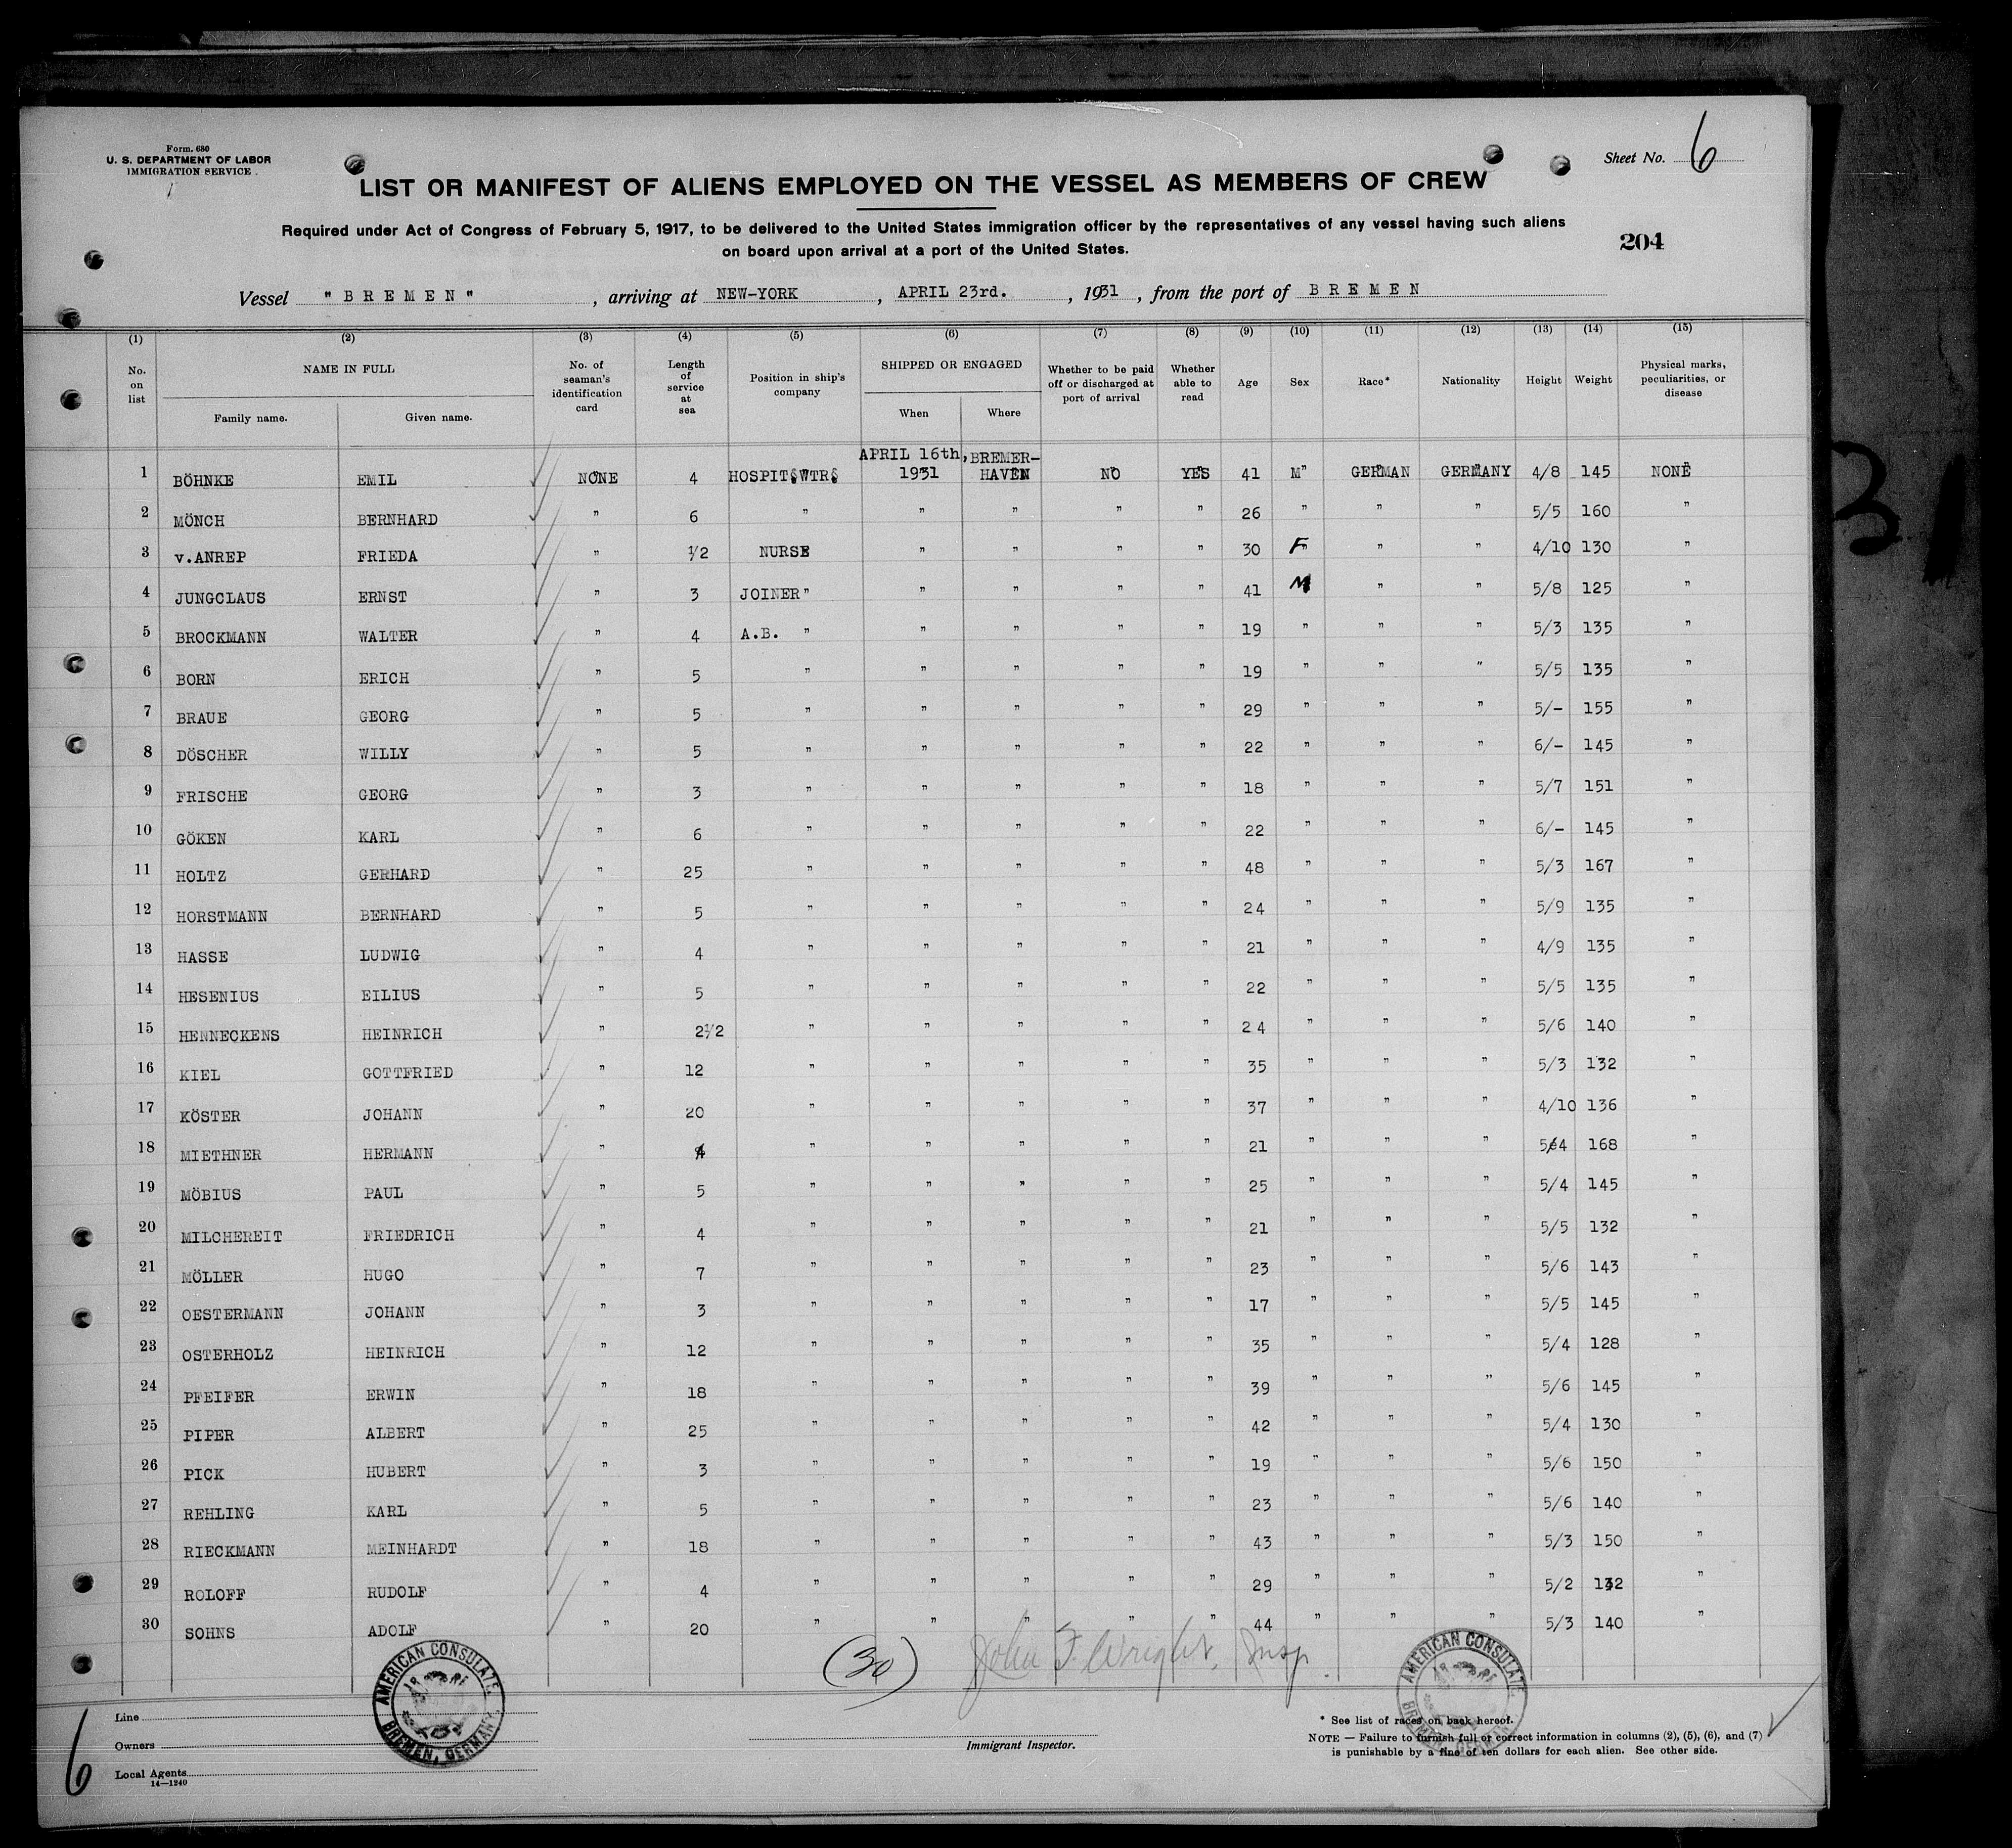 Form. 680
U. S. DEPARTMENT OF LABOR
IMMIGRATION SERVICE
Sheet No. 6
LIST OR MANIFEST OF ALIENS EMPLOYED ON THE VESSEL AS MEMBERS OF CREW
Required under Act of Congress of February 5, 1917, to be delivered to the United States immigration officer by the representatives of any vessel having such aliens
on board upon arrival at a port of the United States.
204
Vessel "BREMEN", arriving at NEW-YORK, APRIL 23rd., 1931, from the port of BREMEN
(1) (2) (3) (4) (5) (6) (7) (8) (9) (10) (11) (12) (13) (14) (15)
No. on list NAME IN FULL Family name. Given name. No. of seaman's identification card Length of service at sea Position in ship's company SHIPPED OR ENGAGED When Where Whether to be paid off or discharged at port of arrival Whether able to read Age Sex Race* Nationality Height Weight Physical marks, peculiarities, or disease
1 BÖHNKE EMIL NONE 4 HOSPIT.WTR. APRIL 16th, 1931 BREMER-HAVEN NO YES 41 M GERMAN GERMANY 4/8 145 NONE
2 MÖNCH BERNHARD " 6 " " " " " 26 " " " 5/5 160 "
3 v.ANREP FRIEDA " 1/2 NURSE " " " " 30 F " " 4/10 130 "
4 JUNGCLAUS ERNST " 3 JOINER " " " " " 41 M " " 5/8 125 "
5 BROCKMANN WALTER " 4 A.B. " " " " " 19 " " " 5/3 135 "
6 BORN ERICH " 5 " " " " " 19 " " " 5/5 135 "
7 BRAUE GEORG " 5 " " " " " 29 " " " 5/- 155 "
8 DÖSCHER WILLY " 5 " " " " " 22 " " " 6/- 145 "
9 FRISCHE GEORG " 3 " " " " " 18 " " " 5/7 151 "
10 GÖKEN KARL " 6 " " " " " 22 " " " 6/- 145 "
11 HOLTZ GERHARD " 25 " " " " " 48 " " " 5/3 167 "
12 HORSTMANN BERNHARD " 5 " " " " " 24 " " " 5/9 135 "
13 HASSE LUDWIG " 4 " " " " " 21 " " " 4/9 135 "
14 HESENIUS EILIUS " 5 " " " " " 22 " " " 5/5 135 "
15 HENNECKENS HEINRICH " 2 1/2 " " " " " 24 " " " 5/6 140 "
16 KIEL GOTTFRIED " 12 " " " " " 35 " " " 5/3 132 "
17 KÖSTER JOHANN " 20 " " " " " 37 " " " 4/10 136 "
18 MIETHNER HERMANN " 4 " " " " " 21 " " " 5/4 168 "
19 MÖBIUS PAUL " 5 " " " " " 25 " " " 5/4 145 "
20 MILCHEREIT FRIEDRICH " 4 " " " " " 21 " " " 5/5 132 "
21 MÖLLER HUGO " 7 " " " " " 23 " " " 5/6 143 "
22 OESTERMANN JOHANN " 3 " " " " " 17 " " " 5/5 145 "
23 OSTERHOLZ HEINRICH " 12 " " " " " 35 " " " 5/4 128 "
24 PFEIFER ERWIN " 18 " " " " " 39 " " " 5/6 145 "
25 PIPER ALBERT " 25 " " " " " 42 " " " 5/4 130 "
26 PICK HUBERT " 3 " " " " " 19 " " " 5/6 150 "
27 REHLING KARL " 5 " " " " " 23 " " " 5/6 140 "
28 RIECKMANN MEINHARDT " 18 " " " " " 43 " " " 5/3 150 "
29 ROLOFF RUDOLF " 4 " " " " " 29 " " " 5/2 132 "
30 SOHNS ADOLF " 20 " " " " " 44 " " " 5/3 140 "
(30) John F. Wright, Insp.
AMERICAN CONSULATE. BREMEN, GERMANY
AMERICAN CONSULATE. BREMEN, GERMANY
Line
Owners
Local Agents
14—1240
6
Immigrant Inspector.
* See list of races on back hereof.
NOTE — Failure to furnish full or correct information in columns (2), (5), (6), and (7)
is punishable by a fine of ten dollars for each alien. See other side.
31